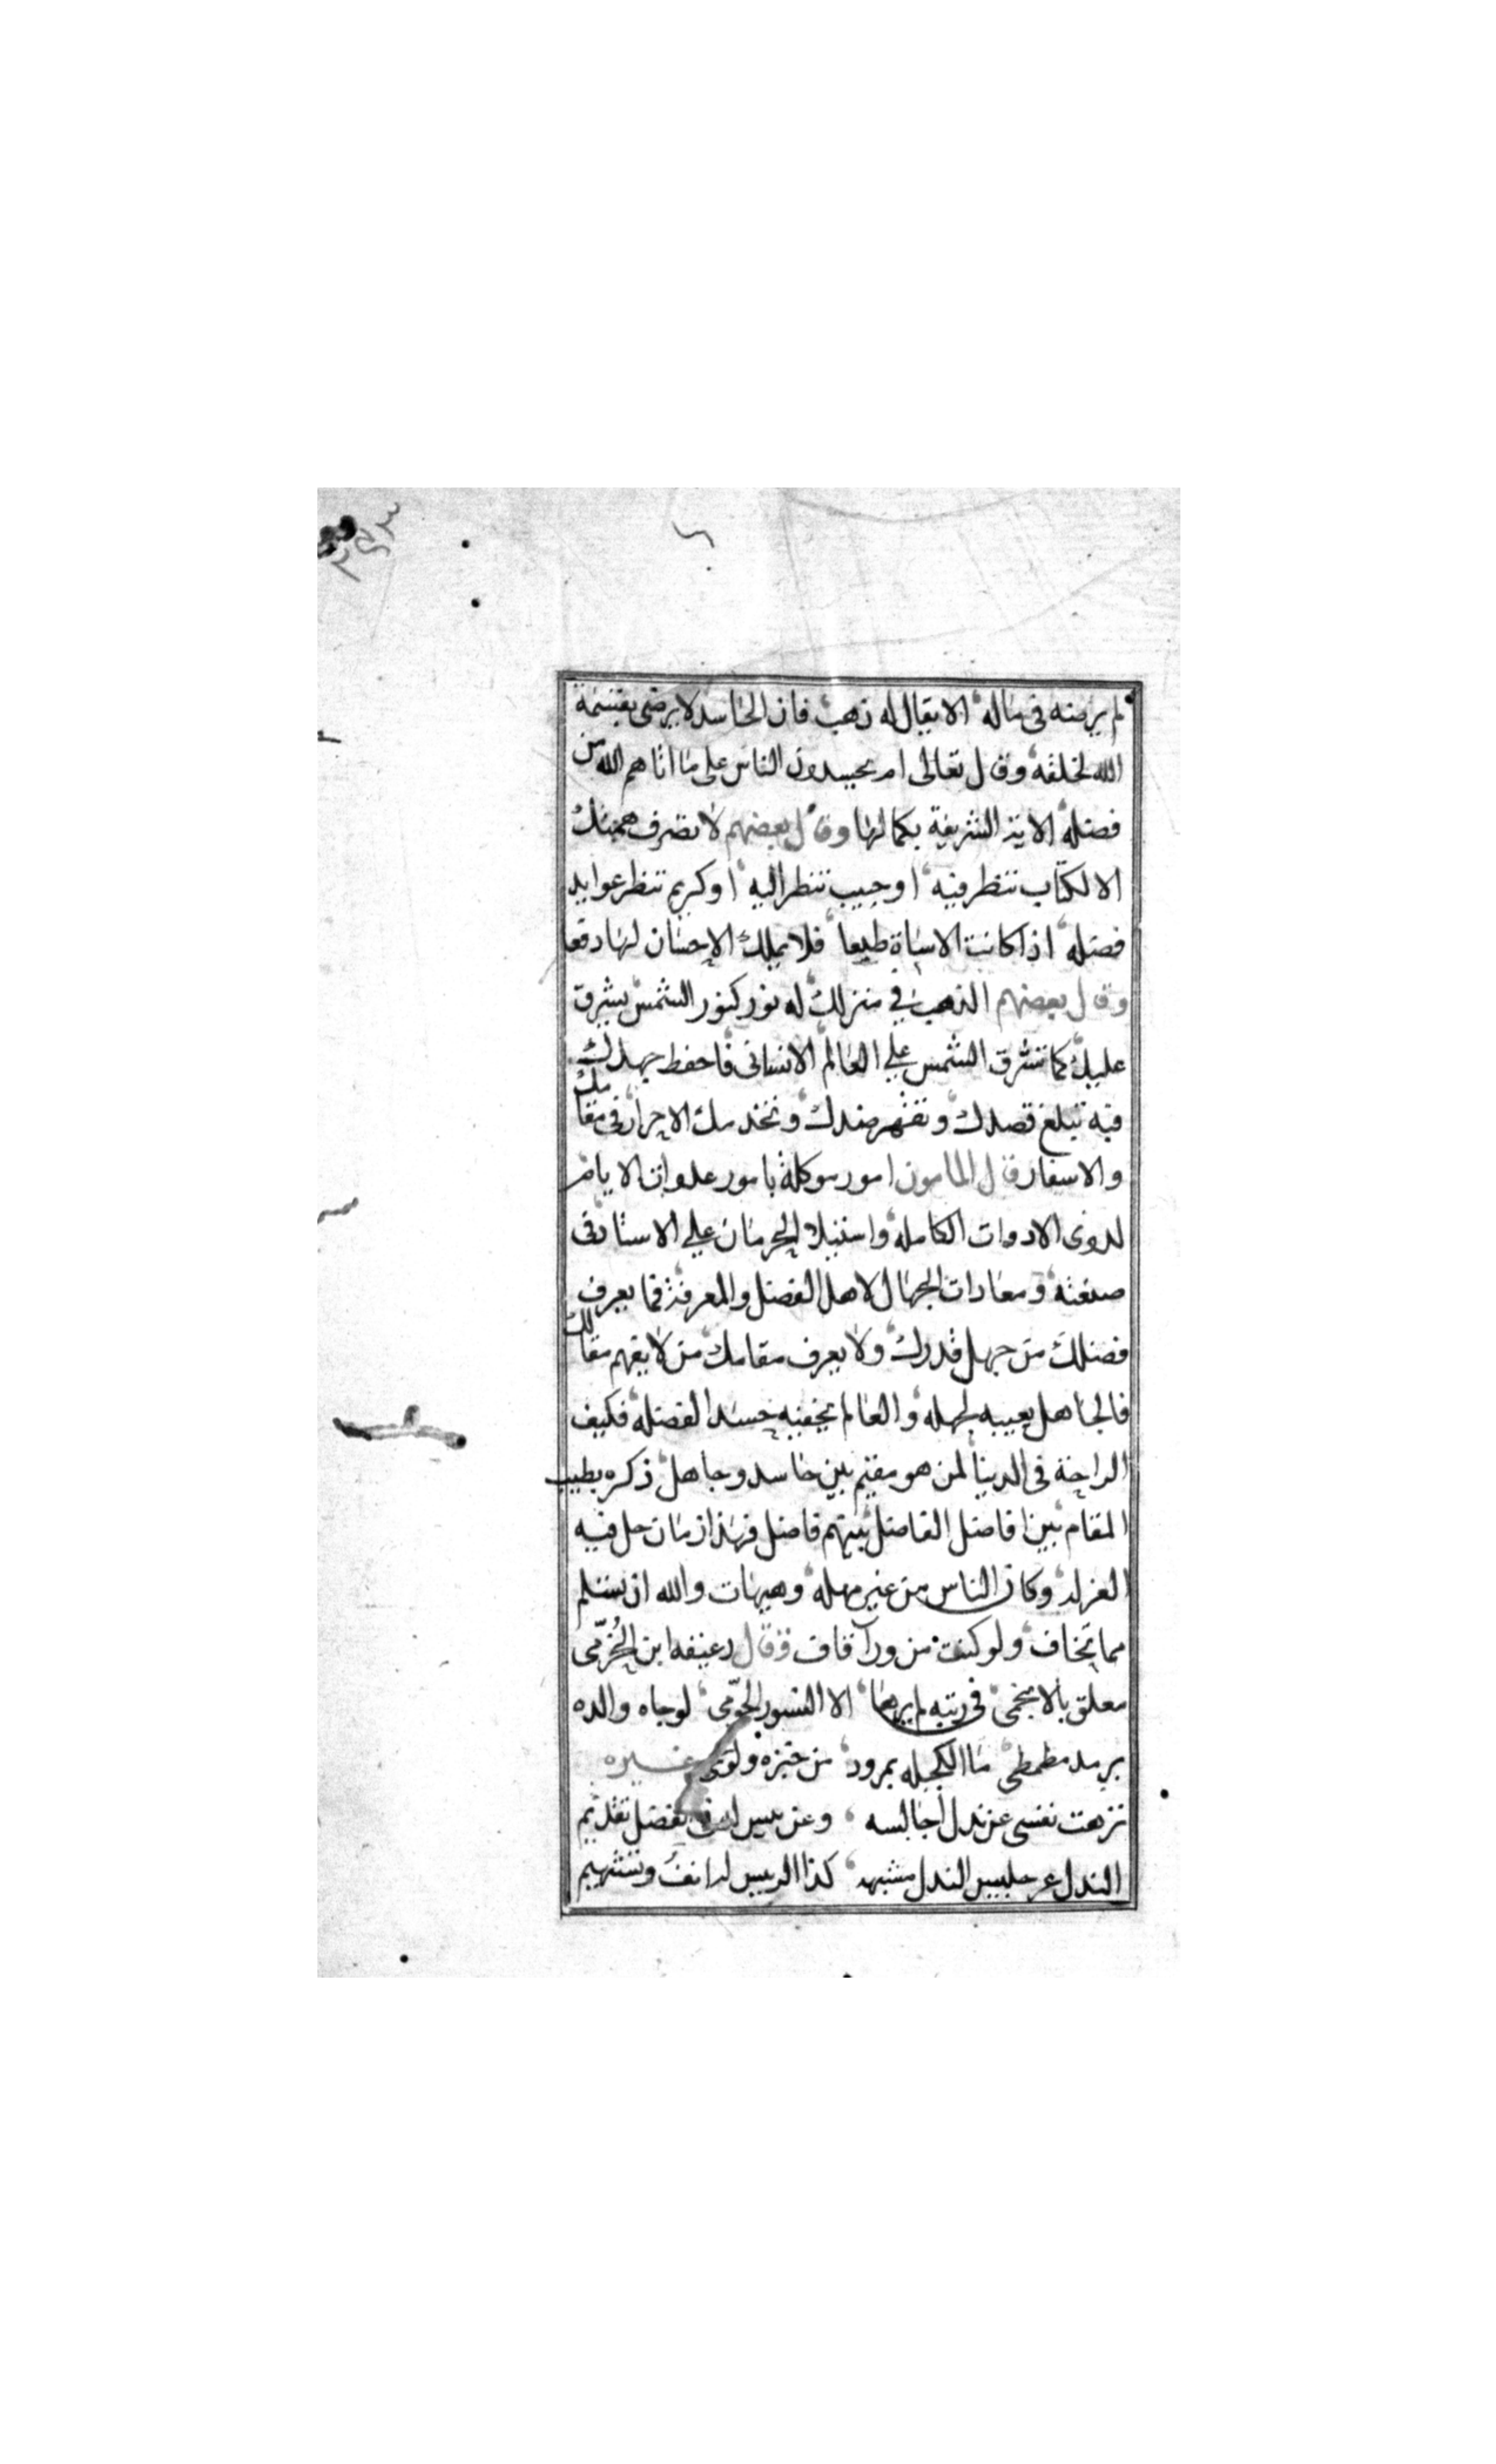 لم يرضه فى ماله الا يقال له ذهب فان الحاسد لا يرضى بقسمة
الله لخلقه وقال تعالى ام يحسدون الناس على ما اتاهم الله من
فضله الاية الشريفة بكمالها وقال بعضهم لا تصرف همتك
الا لكتاب تنظر فيه او حبيب تنظر اليه او كريم تنظر عوايد
فضله اذا كانت الاساة طبعا فلا يملك الاحسان لها دفعا
وقال بعضهم الذهب في منزلك له نور كنور الشمس يشرق
عليك كما تشرق الشمس علي العالم الانسانى فاحفظ جهدك
فيه تبلغ قصدك وتقهر ضدك وتخدمك الاحرار فى مقامك
والاسفار قال المامون امور موكلة بامور عدوان الايام
لذوى الادوات الكامله واستيلا الحرمان علي الاستاد فى
صنعته ومعادات الجهال لاهل الفضل والمعرفة فما يعرف
فضلك من جهل قدرك ولا يعرف مقامك من لا يفهم مقالك
فالجاهل يعيبه لجهله والعالم يخفيه حسدا لفضله فكيف
الراحة فى الدينا لمن هو مقيم بين حاسد وجاهل ذكره بطيب
المقام بين افاضل الفاضل بينهم فاضل فهذا زمان حل فيه
العزله وكان الناس من غير مهله وهيهات والله ان يسلم
مما تخاف ولو كنت من ورآ قاف فقال دعيفه ابن الخزمى
معلق بالانجمى فى رتبه لم يرها الا النسور الحومى لو جاه والده
برمد مطمطى ما الكجله بمرود من خبزه ولو غيره
نزهت نفسى عن ندل اجالسه وعن بفضل تقديم
الندل عر جليس الندل مشبهه كذا الرييس له انف وتشهيم